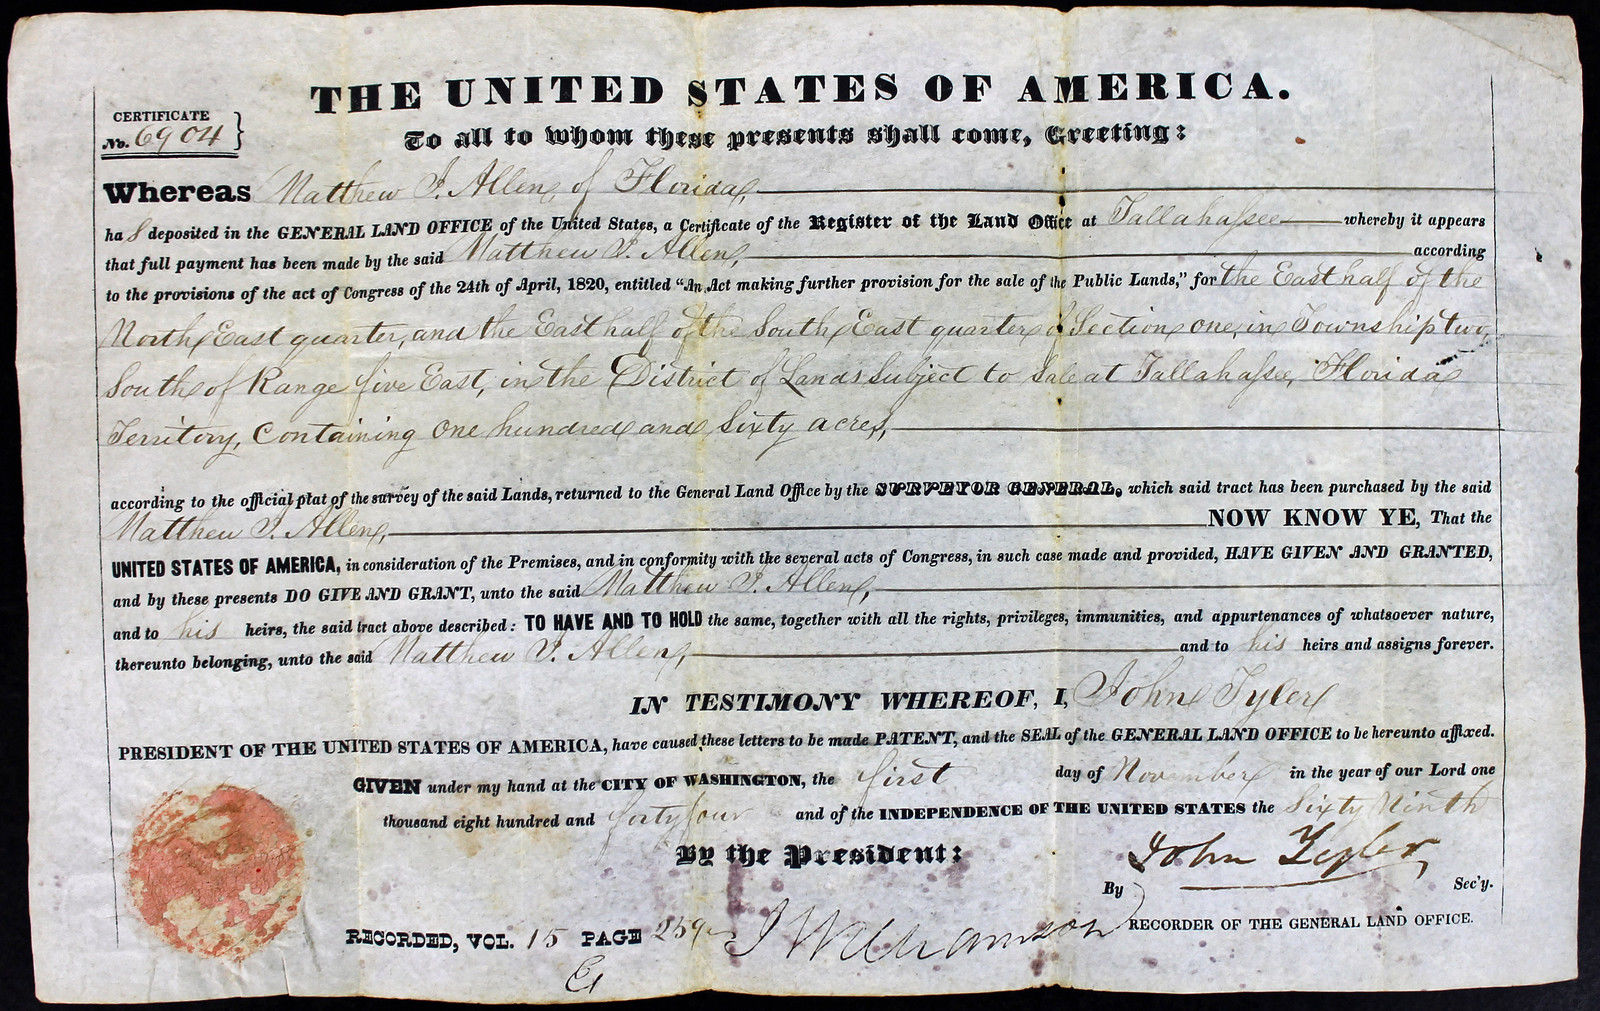 THE UNITED STATES OF AMERICA.
CERTIFICATE
No. 6904
To all to whom these presents shall come, Greeting:
Whereas Matthew J. Allen, of Florida,
has deposited in the GENERAL LAND OFFICE of the United States, a Certificate of the Register of the Land Office at Tallahassee whereby it appears
that full payment has been made by the said Matthew J. Allen, according
to the provisions of the act of Congress of the 24th of April, 1820, entitled "An Act making further provision for the sale of the Public Lands," for the East half of the
North East quarter, and the East half of the South East quarter of Section one, in Township two,
South, of Range five East, in the District of Lands Subject to Sale at Tallahassee, Florida
Territory, Containing one hundred and sixty acres,
according to the official plat of the survey of the said Lands, returned to the General Land Office by the SURVEYOR GENERAL, which said tract has been purchased by the said
Matthew J. Allen, NOW KNOW YE, That the
UNITED STATES OF AMERICA, in consideration of the Premises, and in conformity with the several acts of Congress, in such case made and provided, HAVE GIVEN AND GRANTED,
and by these presents DO GIVE AND GRANT, unto the said Matthew J. Allen,
and to his heirs, the said tract above described: TO HAVE AND TO HOLD the same, together with all the rights, privileges, immunities, and appurtenances of whatsoever nature,
thereunto belonging, unto the said Matthew J. Allen, and to his heirs and assigns forever.
IN TESTIMONY WHEREOF, I, John Tyler
PRESIDENT OF THE UNITED STATES OF AMERICA, have caused these letters to be made PATENT, and the SEAL of the GENERAL LAND OFFICE to be hereunto affixed.
GIVEN under my hand at the CITY OF WASHINGTON, the first day of November in the year of our Lord one
thousand eight hundred and forty four and of the INDEPENDENCE OF THE UNITED STATES the Sixty Ninth
By the President: John Tyler
By Sec'y.
J Williamson RECORDER OF THE GENERAL LAND OFFICE.
RECORDED, VOL. 15 PAGE 259